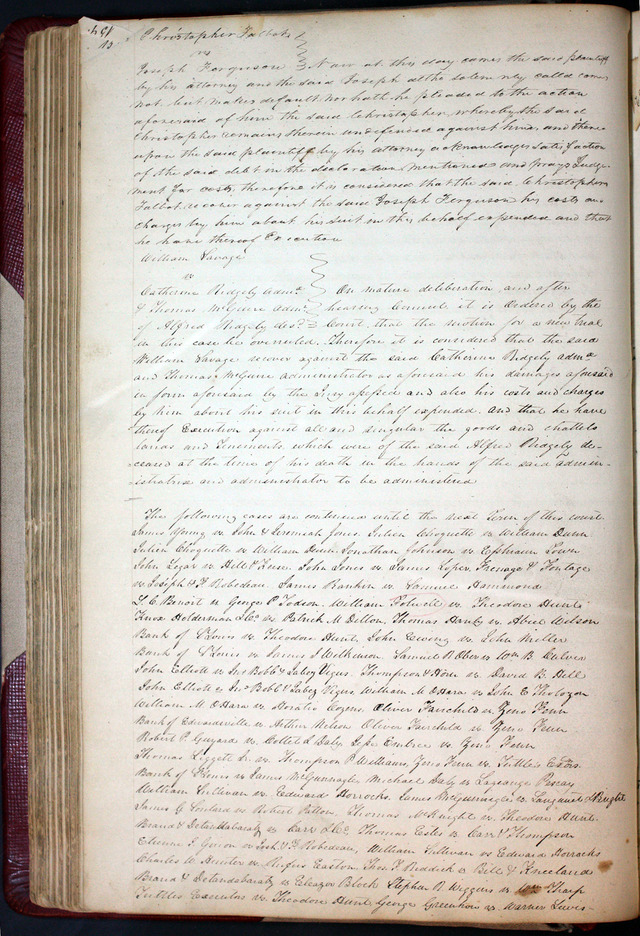 154
Christopher Talbot
vs
Joseph Ferguson Now at this day comes the said plaintiff
by his attorney and the said Joseph altho solemnly called comes
not but makes default nor hath he pleaded to the action
aforesaid of him the said Christopher, whereby the said
Christopher remains therein undefended against him, and there
upon the said plaintiff by his attorney acknowledges satisfaction
of the said debt in the declaration mentioned and prays Judge
ment for costs, therefore it is considered that the said Christopher
Talbot recover against the said Joseph Ferguson his costs and
charges by him about his suit in this behalf expended and that
he have thereof Execution
William Savage
vs
Catherine Ridgely Admx. On mature deliberation and after
& Thomas McGuire Admr. hearing Counsel it is Ordered by the
of Alfred Ridgely decd. Court, that the motion for a new trial
in this case be overruled. Therefore it is considered that the said
William Savage recover against the said Catherine Ridgely admx
and Thomas McGuire administrator as aforesaid his damages aforesaid
in form aforesaid by the Jury assessed and also his costs and charges
by him about his suit in this behalf expended. And that he have
thereof Execution against all and singular the goods and chattels
lands and tenements which were of the said Alfred Ridgely de-
ceased at the time of his death in the hands of the said admin-
istratrix and administrator to be administered
The following cases are continued until the next Term of this court.
James Young vs John & Jeremiah Jones. Julien Choquette vs William Dunn
Julien Choquette vs William Dunn. Jonathan Johnson vs Ephraim Town
John Legar vs Hill P. John Jones vs James Loper,
vs Joseph & F Robedeau. James Rankin vs Samuel Hammond
L. C. Benoit vs George P Todson. William vs Theodore Hunt
Knox Holderman & Co. vs Patrick M Dillon, Thomas Hantz vs Abiel Wilson
Bank of St Louis vs Theodore Hunt, John Ewing vs John Miller
Bank of St Louis vs James J Wilkinson. Samuel R Ober vs Wm B. Culver
John Elliott vs Jno Bobb & Jabez Vigus. Thompson & Horn vs David B. Hill
John Elliott vs Jno Bobb & Jabez Vigus William M O Hara vs John E Tholozan
William M O Hara vs Horatio Cozens. Oliver Fairchild vs Zeno Fenn
Bank of Edwardsville vs Arthur Nelson Oliver Fairchild vs Zeno Fenn
Robert P. Guyard vs Collet & Daly. Jesse Embree vs Zeno Fenn
Thomas Liggett Sr. vs Thompson P Williams, Zeno Fenn vs Tuttles Exors.
Bank of St Louis vs James McGunnagle, Michael Daly vs Lagrange
William Sullivan vs Edward Horrocks. James McGunnagle vs &
James G Soulard vs Robert Patton, Thomas McKnight vs Theodore Hunt
Brand & Detandabaratz vs Carr & Co. Thomas Estes vs Carr & Thompson
Etienne J vs Josh. & F. Robedeau, William Sullivan vs Edward Horrocks
Charles W Hunter vs Rufus Easton, Thos. F Riddick vs Bill & Kneeland
Brand & Detandabaratz vs Eleazer Block Stephen R Wiggins vs Wm Tharp
Tuttles Executors vs Theodore Hunt George Greenhow vs Warner Lewis